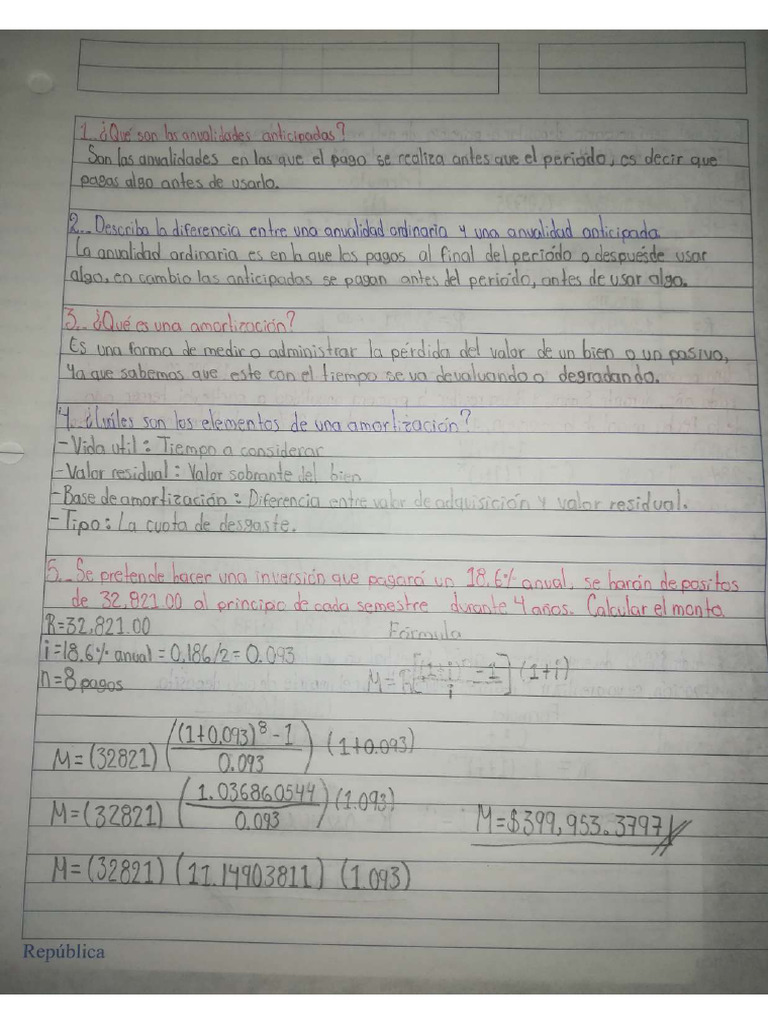 1. ¿Qué son las anualidades anticipadas?
Son las anualidades en las que el pago se realiza antes que el periódo, es decir que
pagas algo antes de usarlo.
2._ Describa la diferencia entre una anualidad ordinaria y una anualidad anticipada.
La anualidad ordinaria es en la que los pagos al final del periódo o despuésde usar
algo, en cambio las anticipadas se pagan antes del periódo, antes de usar algo.
3._ ¿Qué es una amortización?
Es una forma de medir o administrar la pérdida del valor de un bien o un pasivo,
ya que sabemos que este con el tiempo se va devaluando o degradando.
4. ¿Cuáles son los elementos de una amortización?
-Vida util: Tiempo a considerar
-Valor residual: Valor sobrante del bien
-Base de amortización: Diferencia entre valor de adquisición y valor residual.
-Tipo: La cuota de desgaste.
5._ Se pretende hacer una inversión que pagará un 18.6% anual, se harán depositos
de 32,821.00 al principio de cada semestre durante 4 años. Calcular el monto
R=32,821.00 Fórmula
i=18.6% anual = 0.186/2 = 0.093
n=8 pagos M=R[(1+i)ⁿ-1/i](1+i)
M=(32821)((1+0.093)⁸-1/0.093)(1+0.093)
M=(32821)(1.036860544/0.093)(1.093) M=$399,953.3797
M=(32821)(11.14903811)(1.093)
República